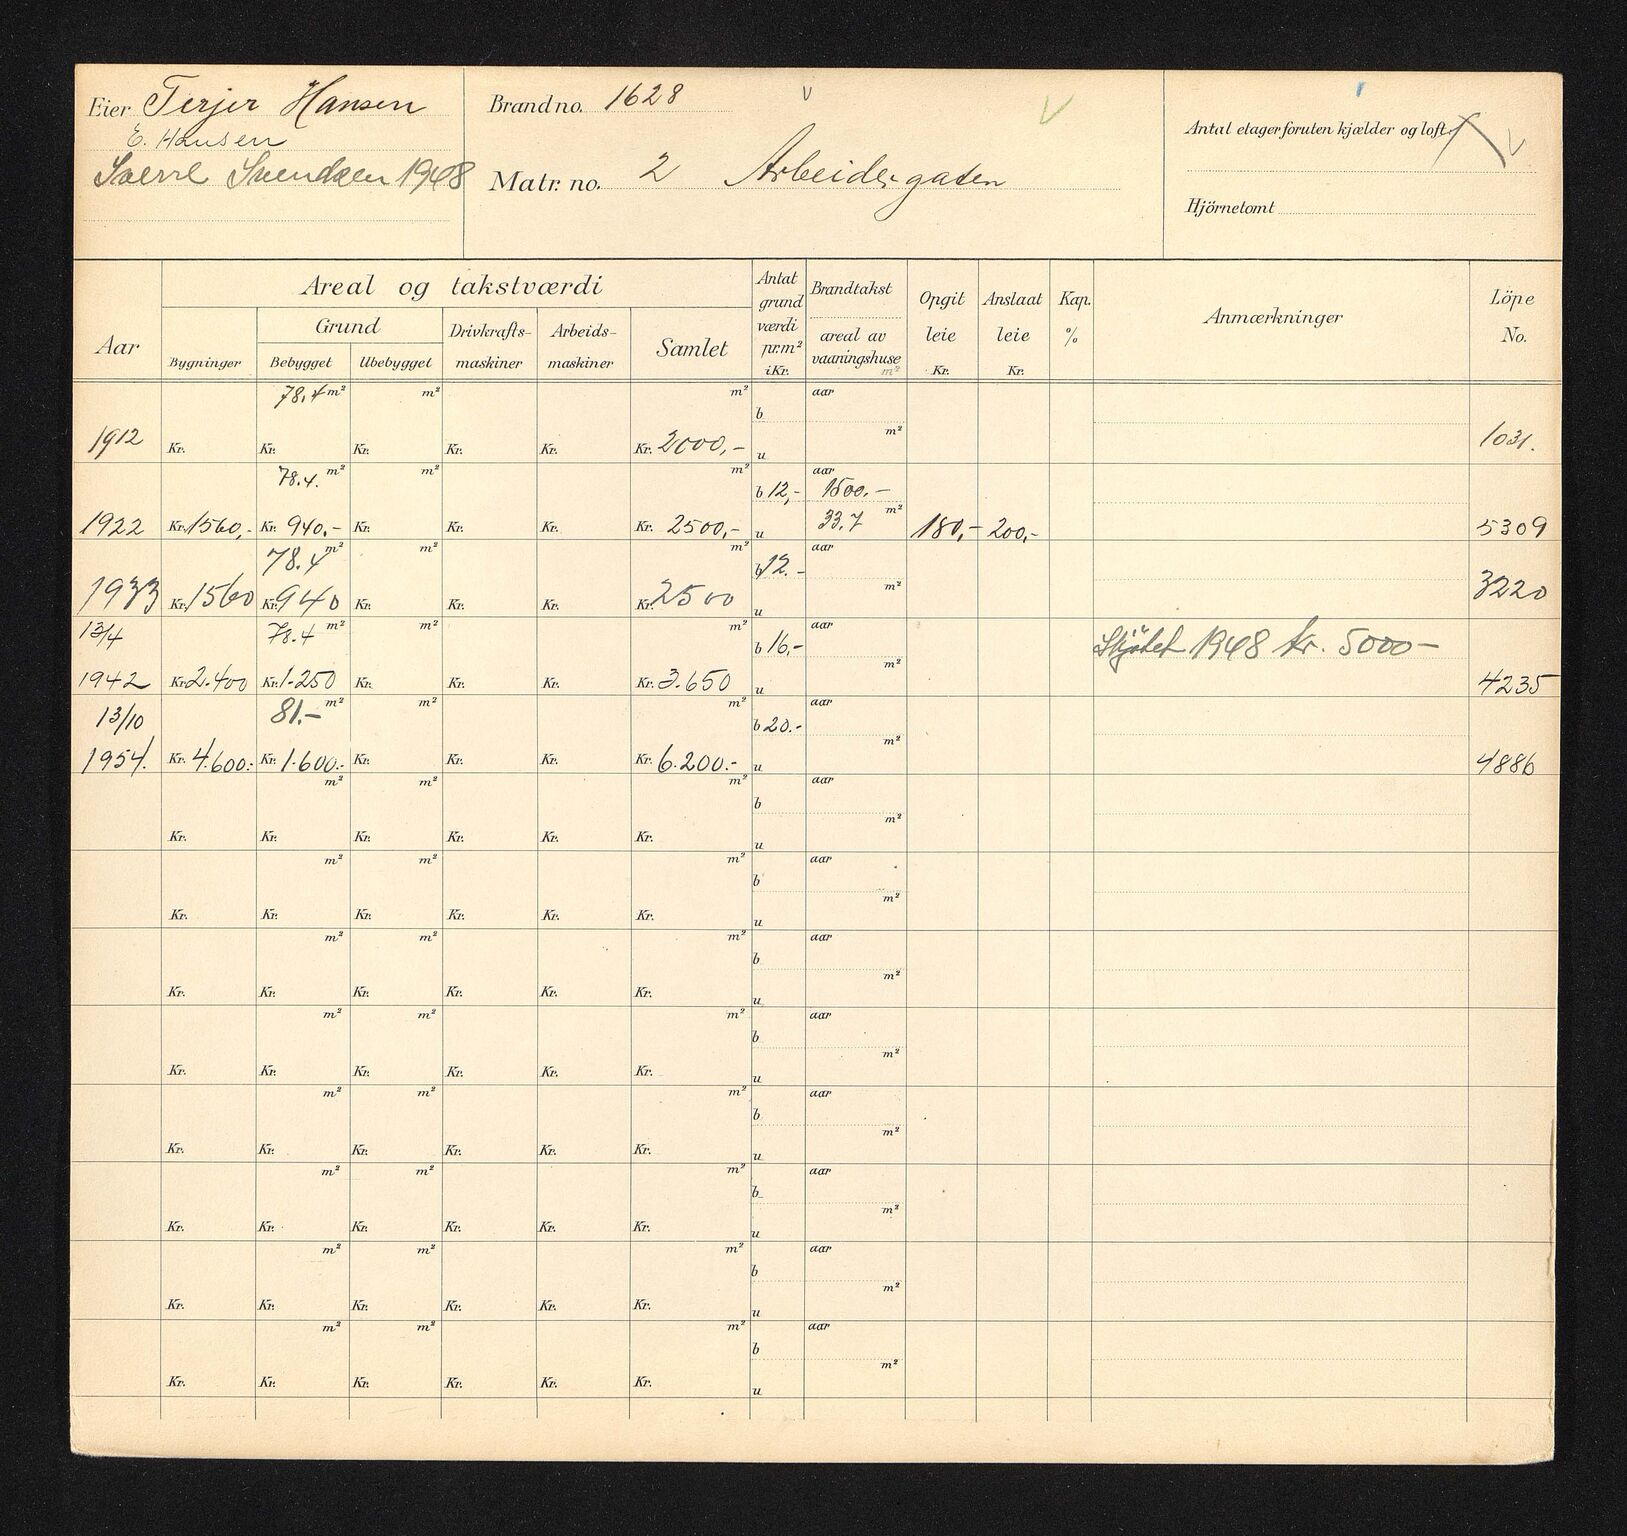 Eier Terjer Hansen
E. Hansen
Sverre Svendsen 1948
Brand no. 1628
Matr. no. 2 Arbeidergaten
Antal etager foruten kjælder og loft
Hjörnetomt
Aar
Areal og takstværdi
Grund
Bygninger
Bebygget
Ubebygget
Drivkrafts-
maskiner
Arbeids-
maskiner
Samlet
Antat
grund
værdi
pr. m²
i Kr.
Brandtakst
areal av
vaaningshuse
m²
Opgit
leie
Kr.
Anslaat
leie
Kr.
Kap.
%
Anmærkninger
Löpe
No.
78.4 m² m² m² b aar
m²
1912 Kr. Kr. Kr. Kr. Kr. Kr. 2000,- u 1031.
78.4. m² m² m² b 12,- aar 1500.-
m²
1922 Kr. 1560,- Kr. 940.- Kr. Kr. Kr. Kr. 2500,- u 33,7 180,- 200,- 5309
78.4 m² m² m² b 12.- aar
m²
1933 Kr. 1560 Kr. 940 Kr. Kr. Kr. Kr. 2500 u 3220
13/4 78.4 m² m² m² b 16,- aar Skjøtet 1948 kr. 5000-
m²
1942 Kr. 2.400 Kr. 1.250 Kr. Kr. Kr. Kr. 3.650 u 4235
13/10 81.- m² m² m² b 20.- aar
m²
1954. Kr. 4.600.- Kr. 1.600.- Kr. Kr. Kr. Kr. 6.200.- u 4886
m² m² m² aar
b
m²
Kr. Kr. Kr. Kr. Kr. Kr. u
m² m² m² aar
b
m²
Kr. Kr. Kr. Kr. Kr. Kr. u
m² m² m² aar
b
m²
Kr. Kr. Kr. Kr. Kr. Kr. u
m² m² m² aar
b
m²
Kr. Kr. Kr. Kr. Kr. Kr. u
m² m² m² aar
b
m²
Kr. Kr. Kr. Kr. Kr. Kr. u
m² m² m² aar
b
m²
Kr. Kr. Kr. Kr. Kr. Kr. u
m² m² m² aar
b
m²
Kr. Kr. Kr. Kr. Kr. Kr. u
m² m² m² aar
b
m²
Kr. Kr. Kr. Kr. Kr. Kr. u